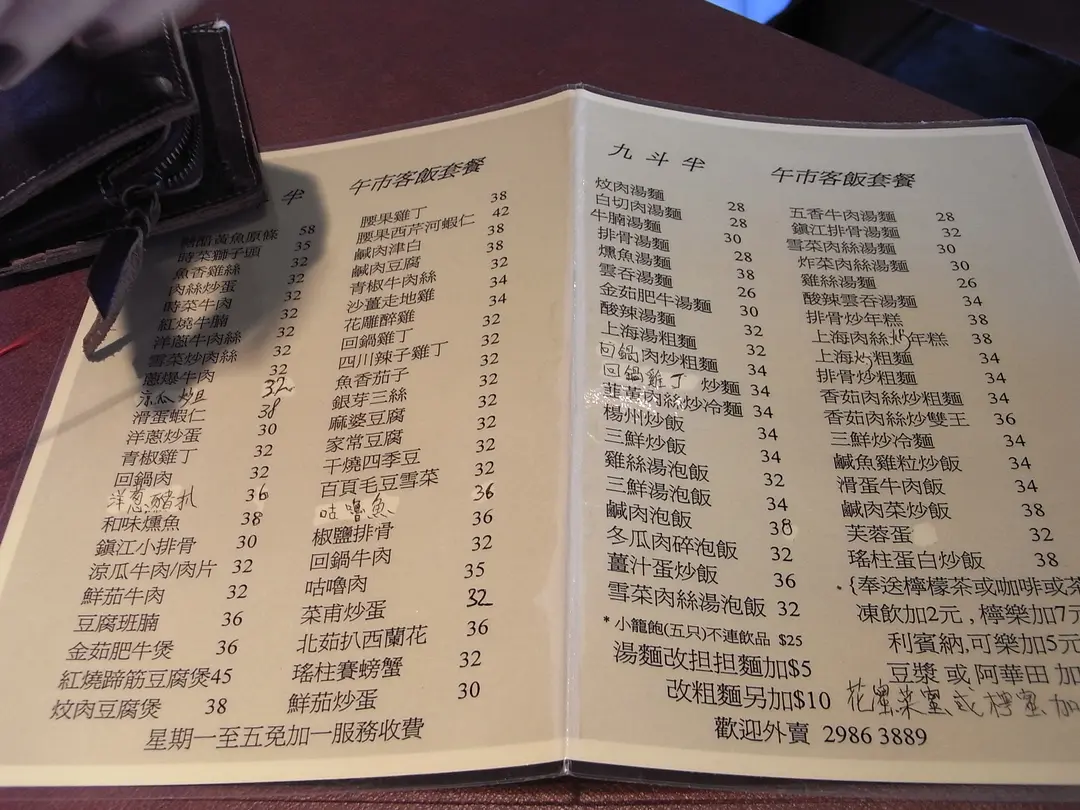 半 午市客飯套餐
糖醋黃魚原條 58
時菜獅子頭 35
魚香雞絲 32
肉絲炒蛋 32
時菜牛肉 32
紅燒牛腩 32
洋蔥牛肉絲 32
雪菜炒肉絲 32
蔥爆牛肉
涼瓜炒旦 32
滑蛋蝦仁 38
洋蔥炒蛋 30
青椒雞丁 32
回鍋肉 32
洋蔥豬扒 36
和味燻魚 38
鎮江小排骨 30
涼瓜牛肉/肉片 32
鮮茄牛肉 32
豆腐班腩 36
金茹肥牛煲 36
紅燒蹄筋豆腐煲45
炆肉豆腐煲 38
腰果雞丁 38
腰果西芹河蝦仁 42
鹹肉津白 38
鹹肉豆腐 38
青椒牛肉絲 32
沙薑走地雞 34
花雕醉雞 34
回鍋雞丁 32
四川辣子雞丁 32
魚香茄子 32
銀芽三絲 32
麻婆豆腐 32
家常豆腐 32
干燒四季豆 32
百頁毛豆雪菜 32
咕嚕魚 36
椒鹽排骨 36
回鍋牛肉 32
咕嚕肉 35
菜甫炒蛋 32
北茹扒西蘭花 36
瑤柱賽螃蟹 32
鮮茄炒蛋 30
星期一至五免加一服務收費
九斗半 午市客飯套餐
炆肉湯麵 28
白切肉湯麵 28
牛腩湯麵 30
排骨湯麵 28
燻魚湯麵 38
雲吞湯麵 26
金茹肥牛湯麵 30
酸辣湯麵 32
上海湯粗麵 32
回鍋肉炒粗麵 34
回鍋雞丁炒麵 34
韮黃肉絲炒冷麵 34
楊州炒飯 34
三鮮炒飯 34
雞絲湯泡飯 32
三鮮湯泡飯 34
鹹肉泡飯 38
冬瓜肉碎泡飯 32
薑汁蛋炒飯 36
雪菜肉絲湯泡飯 32
* 小籠飽(五只)不連飲品 $25
湯麵改担担麵加$5
改粗麵另加$10
五香牛肉湯麵 28
鎮江排骨湯麵 32
雪菜肉絲湯麵 30
炸菜肉絲湯麵 30
雞絲湯麵 26
酸辣雲吞湯麵 34
排骨炒年糕 38
上海肉絲炒年糕 38
上海炒粗麵 34
排骨炒粗麵 34
香茹肉絲炒粗麵 34
香茹肉絲炒雙王 36
三鮮炒冷麵 34
鹹魚雞粒炒飯 34
滑蛋牛肉飯 34
鹹肉菜炒飯 38
芙蓉蛋 32
瑤柱蛋白炒飯 38
*{奉送檸檬茶或咖啡或茶
凍飲加2元,檸樂加7元
利賓納,可樂加5元
豆漿 或 阿華田 加
花蜜菜蜜或檸蜜 加
歡迎外賣 2986 3889